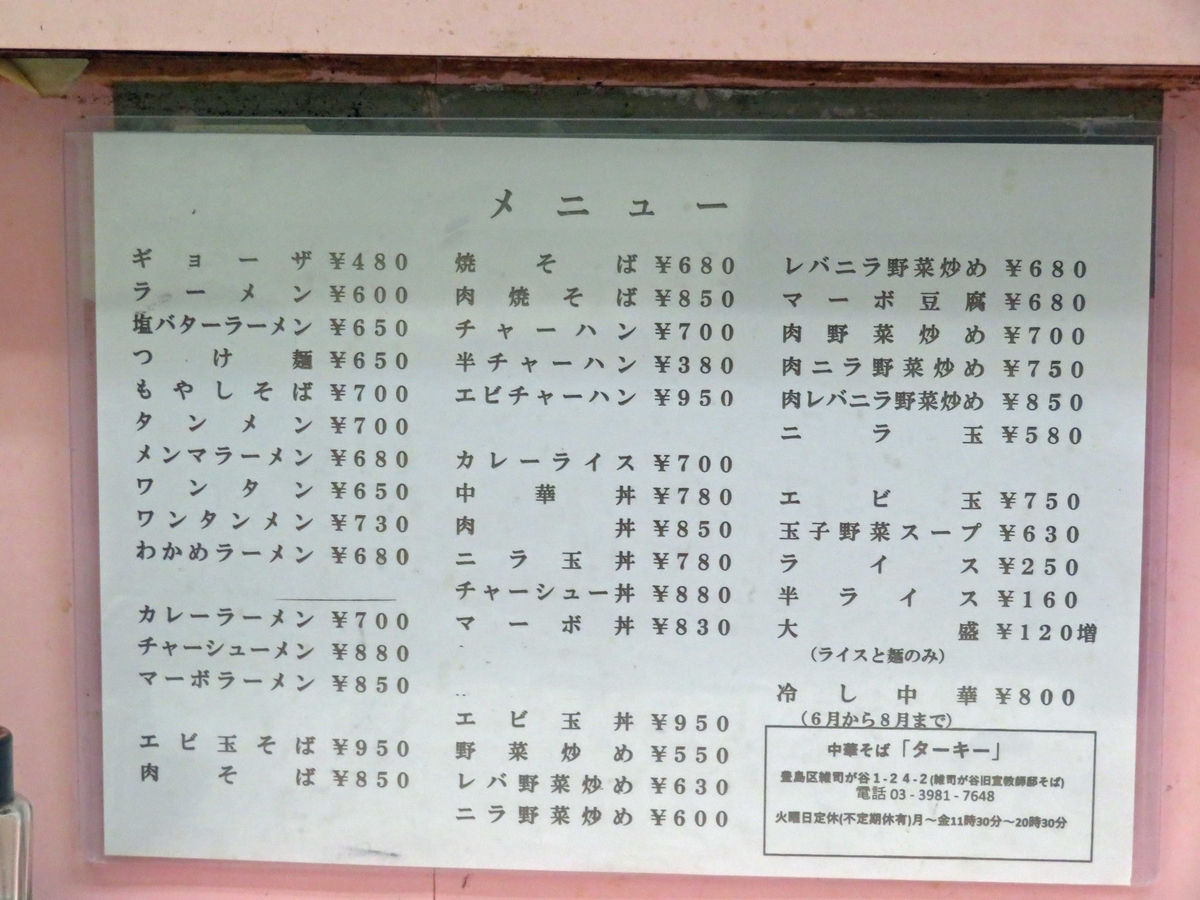 メニュー
ギョーザ ¥480
ラーメン ¥600
塩バターラーメン ¥650
つけ麺 ¥650
もやしそば ¥700
タンメン ¥700
メンマラーメン ¥680
ワンタン ¥650
ワンタンメン ¥730
わかめラーメン ¥680
カレーラーメン ¥700
チャーシューメン ¥880
マーボラーメン ¥850
エビ玉そば ¥950
肉そば ¥850
焼そば ¥680
肉焼そば ¥850
チャーハン ¥700
半チャーハン ¥380
エビチャーハン ¥950
カレーライス ¥700
中華丼 ¥780
肉丼 ¥850
ニラ玉丼 ¥780
チャーシュー丼 ¥880
マーボ丼 ¥830
エビ玉丼 ¥950
野菜炒め ¥550
レバ野菜炒め ¥630
ニラ野菜炒め ¥600
レバニラ野菜炒め ¥680
マーボ豆腐 ¥680
肉野菜炒め ¥700
肉ニラ野菜炒め ¥750
肉レバニラ野菜炒め ¥850
ニラ玉 ¥580
エビ玉 ¥750
玉子野菜スープ ¥630
ライス ¥250
半ライス ¥160
大盛 ¥120増
(ライスと麺のみ)
冷し中華 ¥800
(6月から8月まで)
中華そば「ターキー」
豊島区雑司が谷1-24-2(雑司が谷旧宣教師邸そば)
電話 03-3981-7648
火曜日定休(不定期休有)月～金11時30分～20時30分